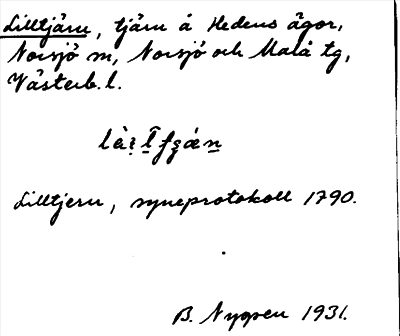 Lilltjärn, tjärn å Hedens ägor,
Norsjö sn, Norsjö och Malå tg,
Västerb. l.
Lilltjern, syneprotokoll 1790.
B. Nygren 1931.